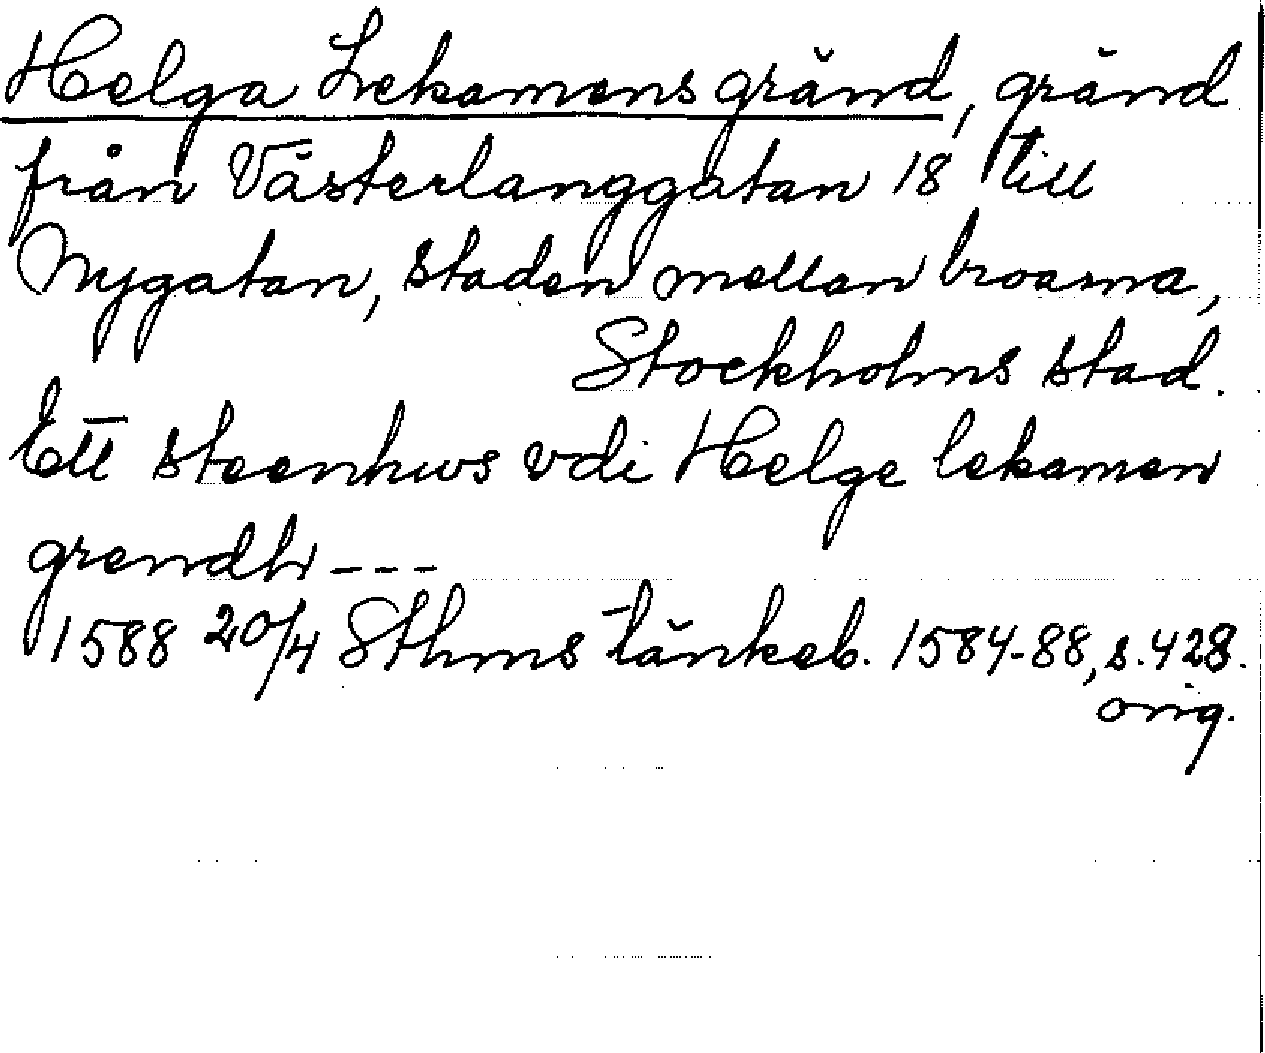 Helga Lekamens gränd, gränd
från Västerlanggatan 18 till
Nygatan, staden mellan broarna,
Stockholms stad.
Ett steenhws vdi Helge lekamen
grendh - - -
1588 20/4 Sthms tänkeb. 1584-88, s. 428.
orig.